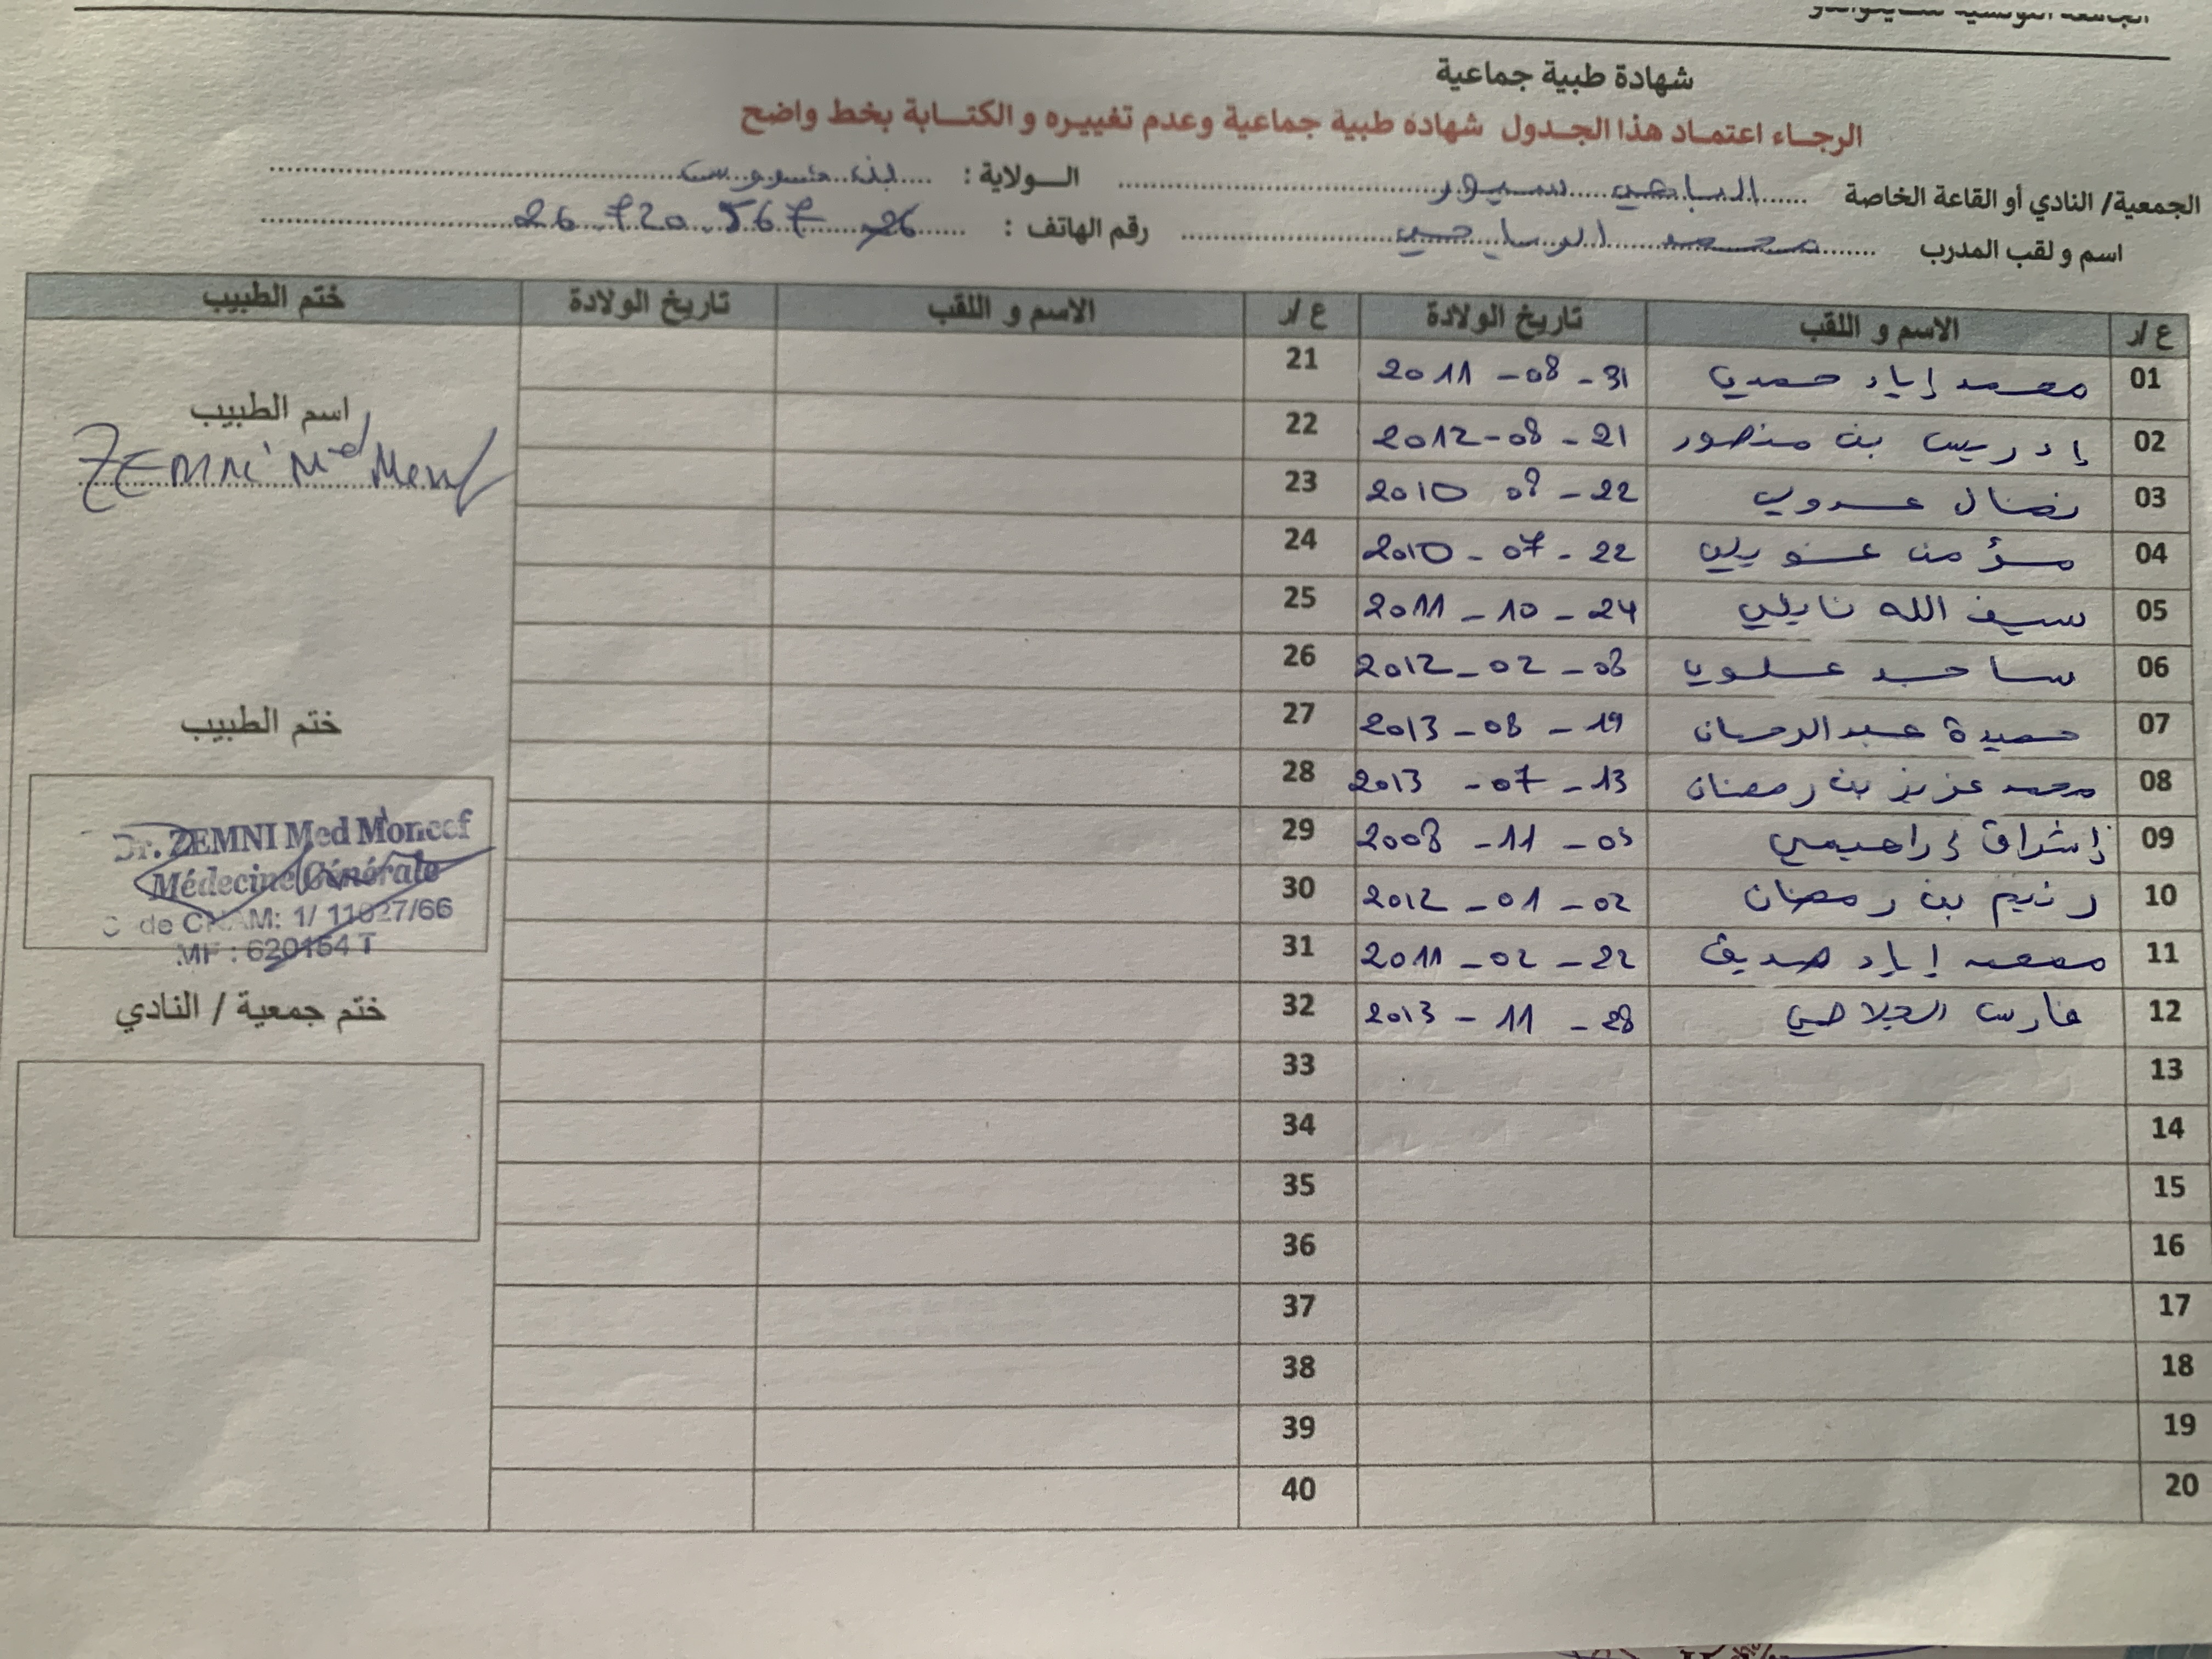 شهادة طبية جماعية
الرجاء اعتماد هذا الجدول شهادة طبية جماعية وعدم تغييره و الكتابة بخط واضح
الجمعية/ النادي أو القاعة الخاصة الباهي سبور الولاية : بن عروس
اسم و لقب المدرب محمد الرياحي رقم الهاتف : 26.720.567
ع/ر الاسم و اللقب تاريخ الولادة ع/ر الاسم و اللقب تاريخ الولادة ختم الطبيب
01 محمد إياد حمدي 2011 - 08 - 31 21
02 إدريس بن منصور 2012 - 08 - 21 22
03 نضال عدوي 2010 08 - 22 23
04 مؤمن 2010 - 07 - 22 24
05 سيف الله نايلي 2011 - 10 - 24 25
06 علوي 2012 - 02 - 08 26
07 حميدة عبدالرحمان 2013 - 08 - 19 27
08 محمد عزيز بن رمضان 2013 - 07 - 13 28
09 إشراق إبراهيمي 2008 - 11 - 03 29
10 رنيم بن رمضان 2012 - 01 - 02 30
11 محمد إياد صديق 2011 - 02 - 22 31
12 فارس الجلاصي 2013 - 11 - 28 32
13 33
14 34
15 35
16 36
17 37
18 38
19 39
20 40
اسم الطبيب
ZEMNI Md
ختم الطبيب
Dr. ZEMNI Med Moncef
Médecine Générale
Code CNAM: 1/ 11027/66
MF : 620154 T
ختم جمعية / النادي